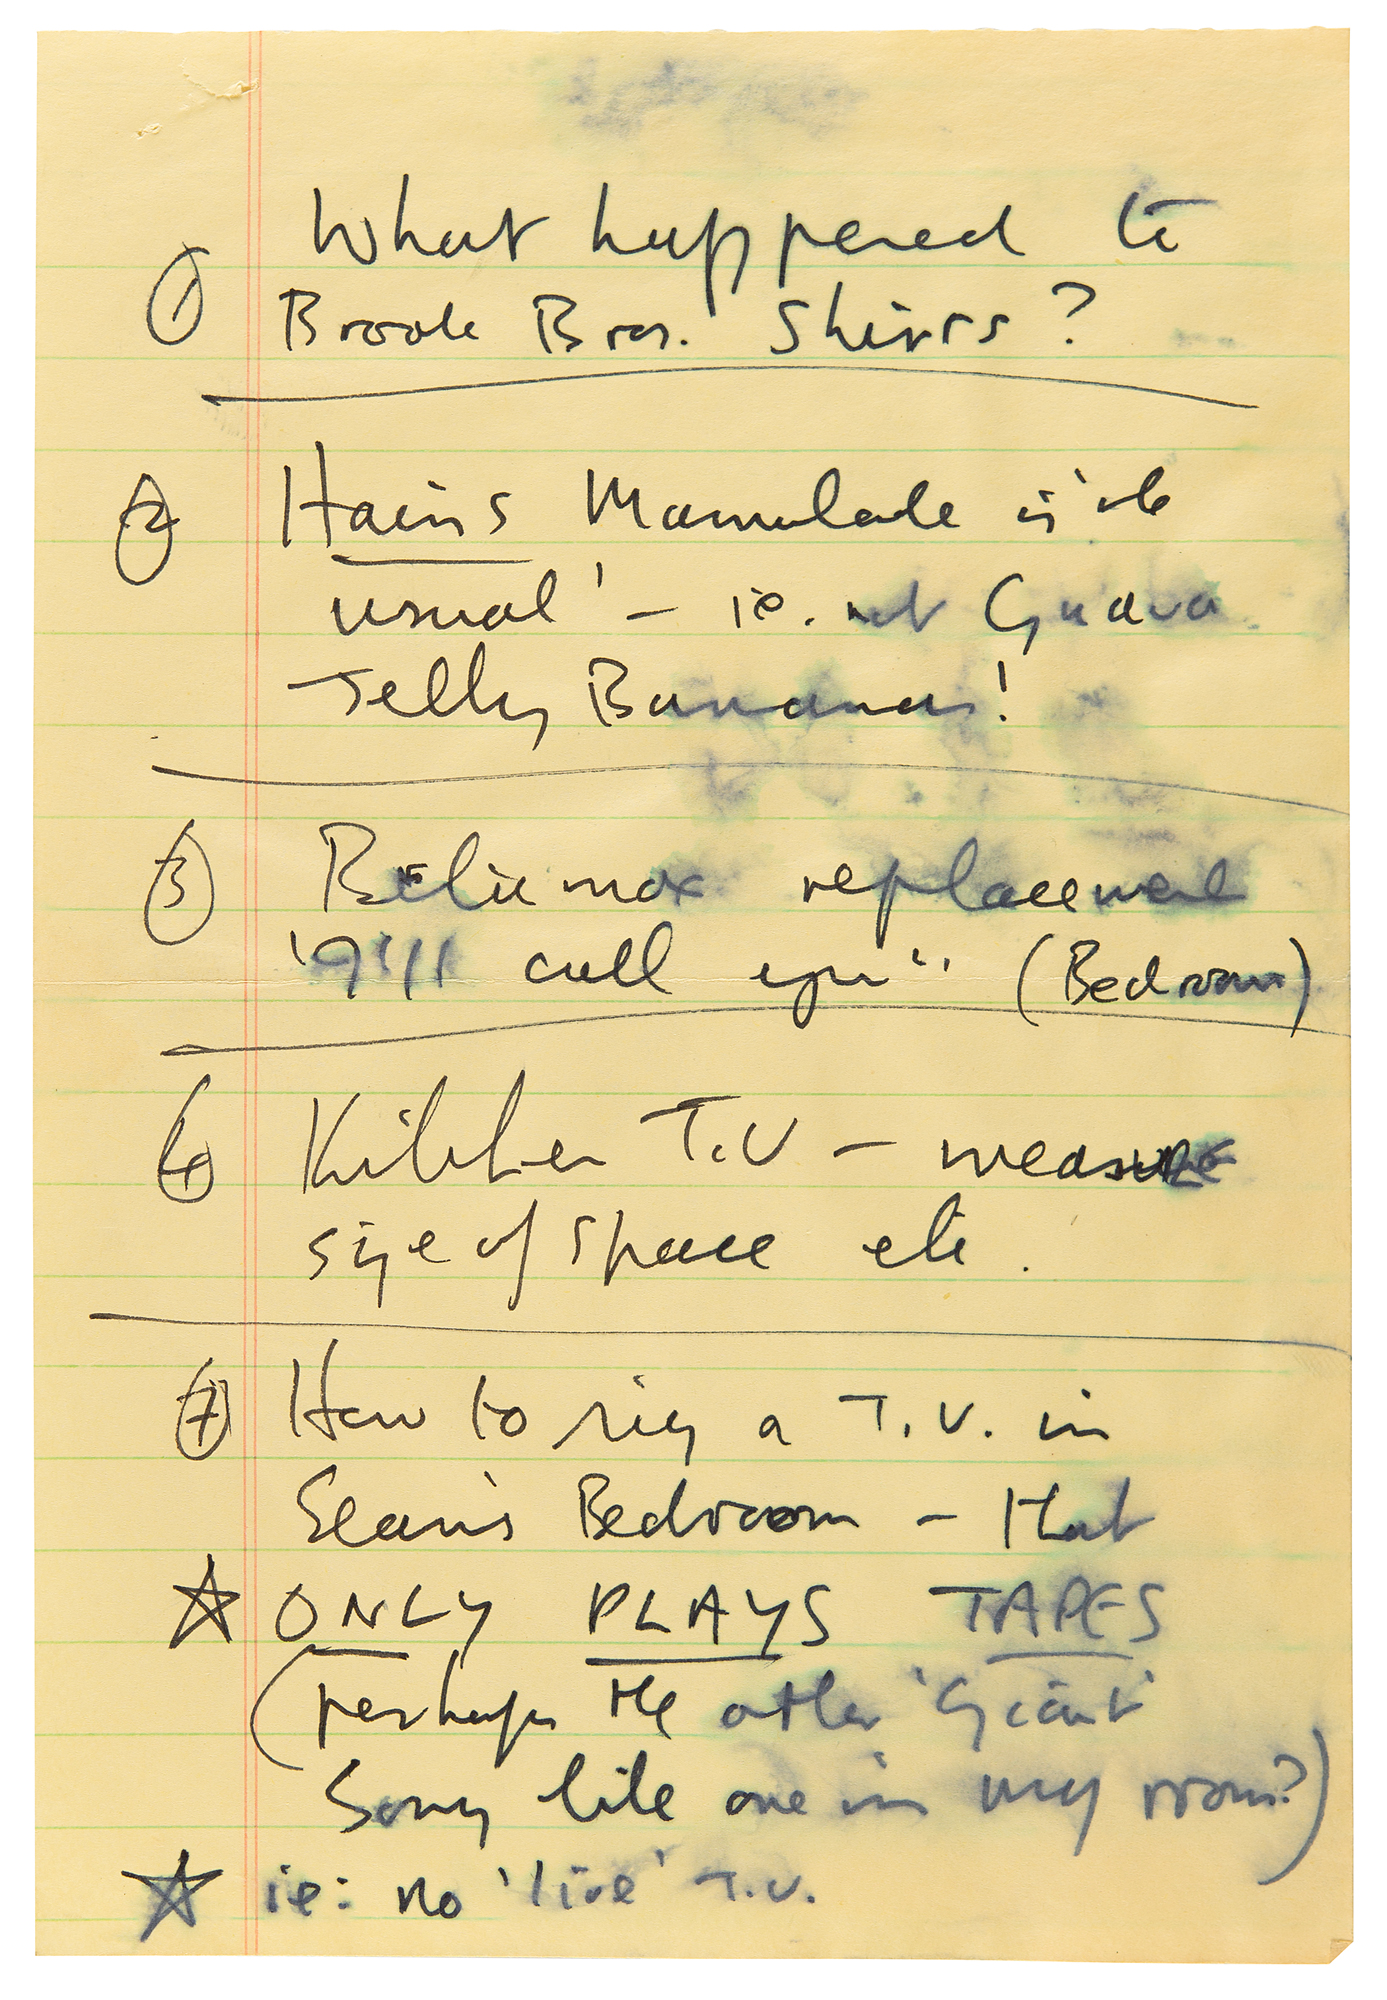 ① What happened to
Brook Bros. Shirts?
② Hains Marmalade in 'the
usual' – ie. not Guava
Jelly Bananas!
③ replacement
'I'll call you" (Bedroom)
⑥ Kitchen T.V – measure
size of space etc.
⑦ How to rig a T.V. in
Sean's Bedroom – that
☆ ONLY PLAYS TAPES
(perhaps the other 'Giant'
Sony like one in my room?)
☆ ie: no 'live' T.V.